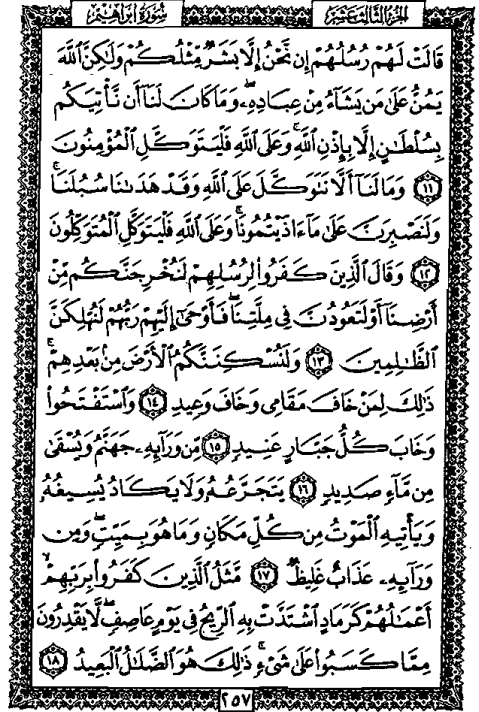 سُورَةُ إِبْرَاهِيمَ الجزء الثالث عشر
قَالَتْ لَهُمْ رُسُلُهُمْ إِن نَّحْنُ إِلَّا بَشَرٌ مِّثْلُكُمْ وَلَٰكِنَّ ٱللَّهَ
يَمُنُّ عَلَىٰ مَن يَشَآءُ مِنْ عِبَادِهِۦ ۖ وَمَا كَانَ لَنَآ أَن نَّأْتِيَكُم
بِسُلْطَٰنٍ إِلَّا بِإِذْنِ ٱللَّهِ ۚ وَعَلَى ٱللَّهِ فَلْيَتَوَكَّلِ ٱلْمُؤْمِنُونَ
١١ وَمَا لَنَآ أَلَّا نَتَوَكَّلَ عَلَى ٱللَّهِ وَقَدْ هَدَىٰنَا سُبُلَنَا ۚ
وَلَنَصْبِرَنَّ عَلَىٰ مَآ ءَاذَيْتُمُونَا ۚ وَعَلَى ٱللَّهِ فَلْيَتَوَكَّلِ ٱلْمُتَوَكِّلُونَ
١٢ وَقَالَ ٱلَّذِينَ كَفَرُوا۟ لِرُسُلِهِمْ لَنُخْرِجَنَّكُم مِّنْ
أَرْضِنَآ أَوْ لَتَعُودُنَّ فِى مِلَّتِنَا ۖ فَأَوْحَىٰٓ إِلَيْهِمْ رَبُّهُمْ لَنُهْلِكَنَّ
ٱلظَّٰلِمِينَ ١٣ وَلَنُسْكِنَنَّكُمُ ٱلْأَرْضَ مِنۢ بَعْدِهِمْ ۚ
ذَٰلِكَ لِمَنْ خَافَ مَقَامِى وَخَافَ وَعِيدِ ١٤ وَٱسْتَفْتَحُوا۟
وَخَابَ كُلُّ جَبَّارٍ عَنِيدٍ ١٥ مِّن وَرَآئِهِۦ جَهَنَّمُ وَيُسْقَىٰ
مِن مَّآءٍ صَدِيدٍ ١٦ يَتَجَرَّعُهُۥ وَلَا يَكَادُ يُسِيغُهُۥ
وَيَأْتِيهِ ٱلْمَوْتُ مِن كُلِّ مَكَانٍ وَمَا هُوَ بِمَيِّتٍ ۖ وَمِن
وَرَآئِهِۦ عَذَابٌ غَلِيظٌ ١٧ مَّثَلُ ٱلَّذِينَ كَفَرُوا۟ بِرَبِّهِمْ ۖ
أَعْمَٰلُهُمْ كَرَمَادٍ ٱشْتَدَّتْ بِهِ ٱلرِّيحُ فِى يَوْمٍ عَاصِفٍ ۖ لَّا يَقْدِرُونَ
مِمَّا كَسَبُوا۟ عَلَىٰ شَىْءٍ ۚ ذَٰلِكَ هُوَ ٱلضَّلَٰلُ ٱلْبَعِيدُ ١٨
٢٥٧